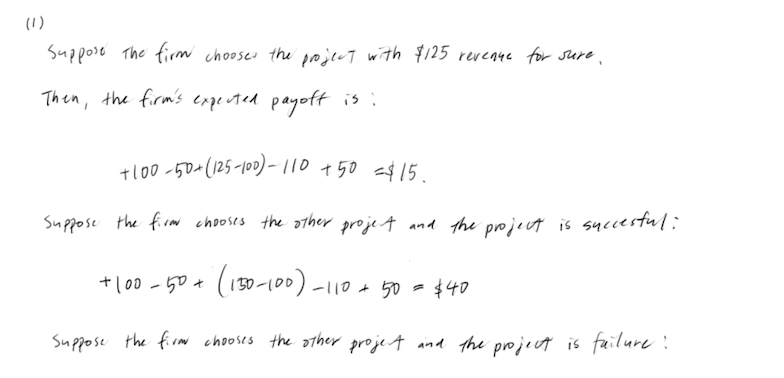 (1)
Suppose The firm chooses the project with $125 revenue for sure.
Then, the firm's expected payoff is :
+100 -50+(125-100)-110 +50 =$15.
Suppose the firm chooses the other project and the project is succesful:
+100 - 50 + (150-100) -110 + 50 = $40
Suppose the firm chooses the other project and the project is failure :